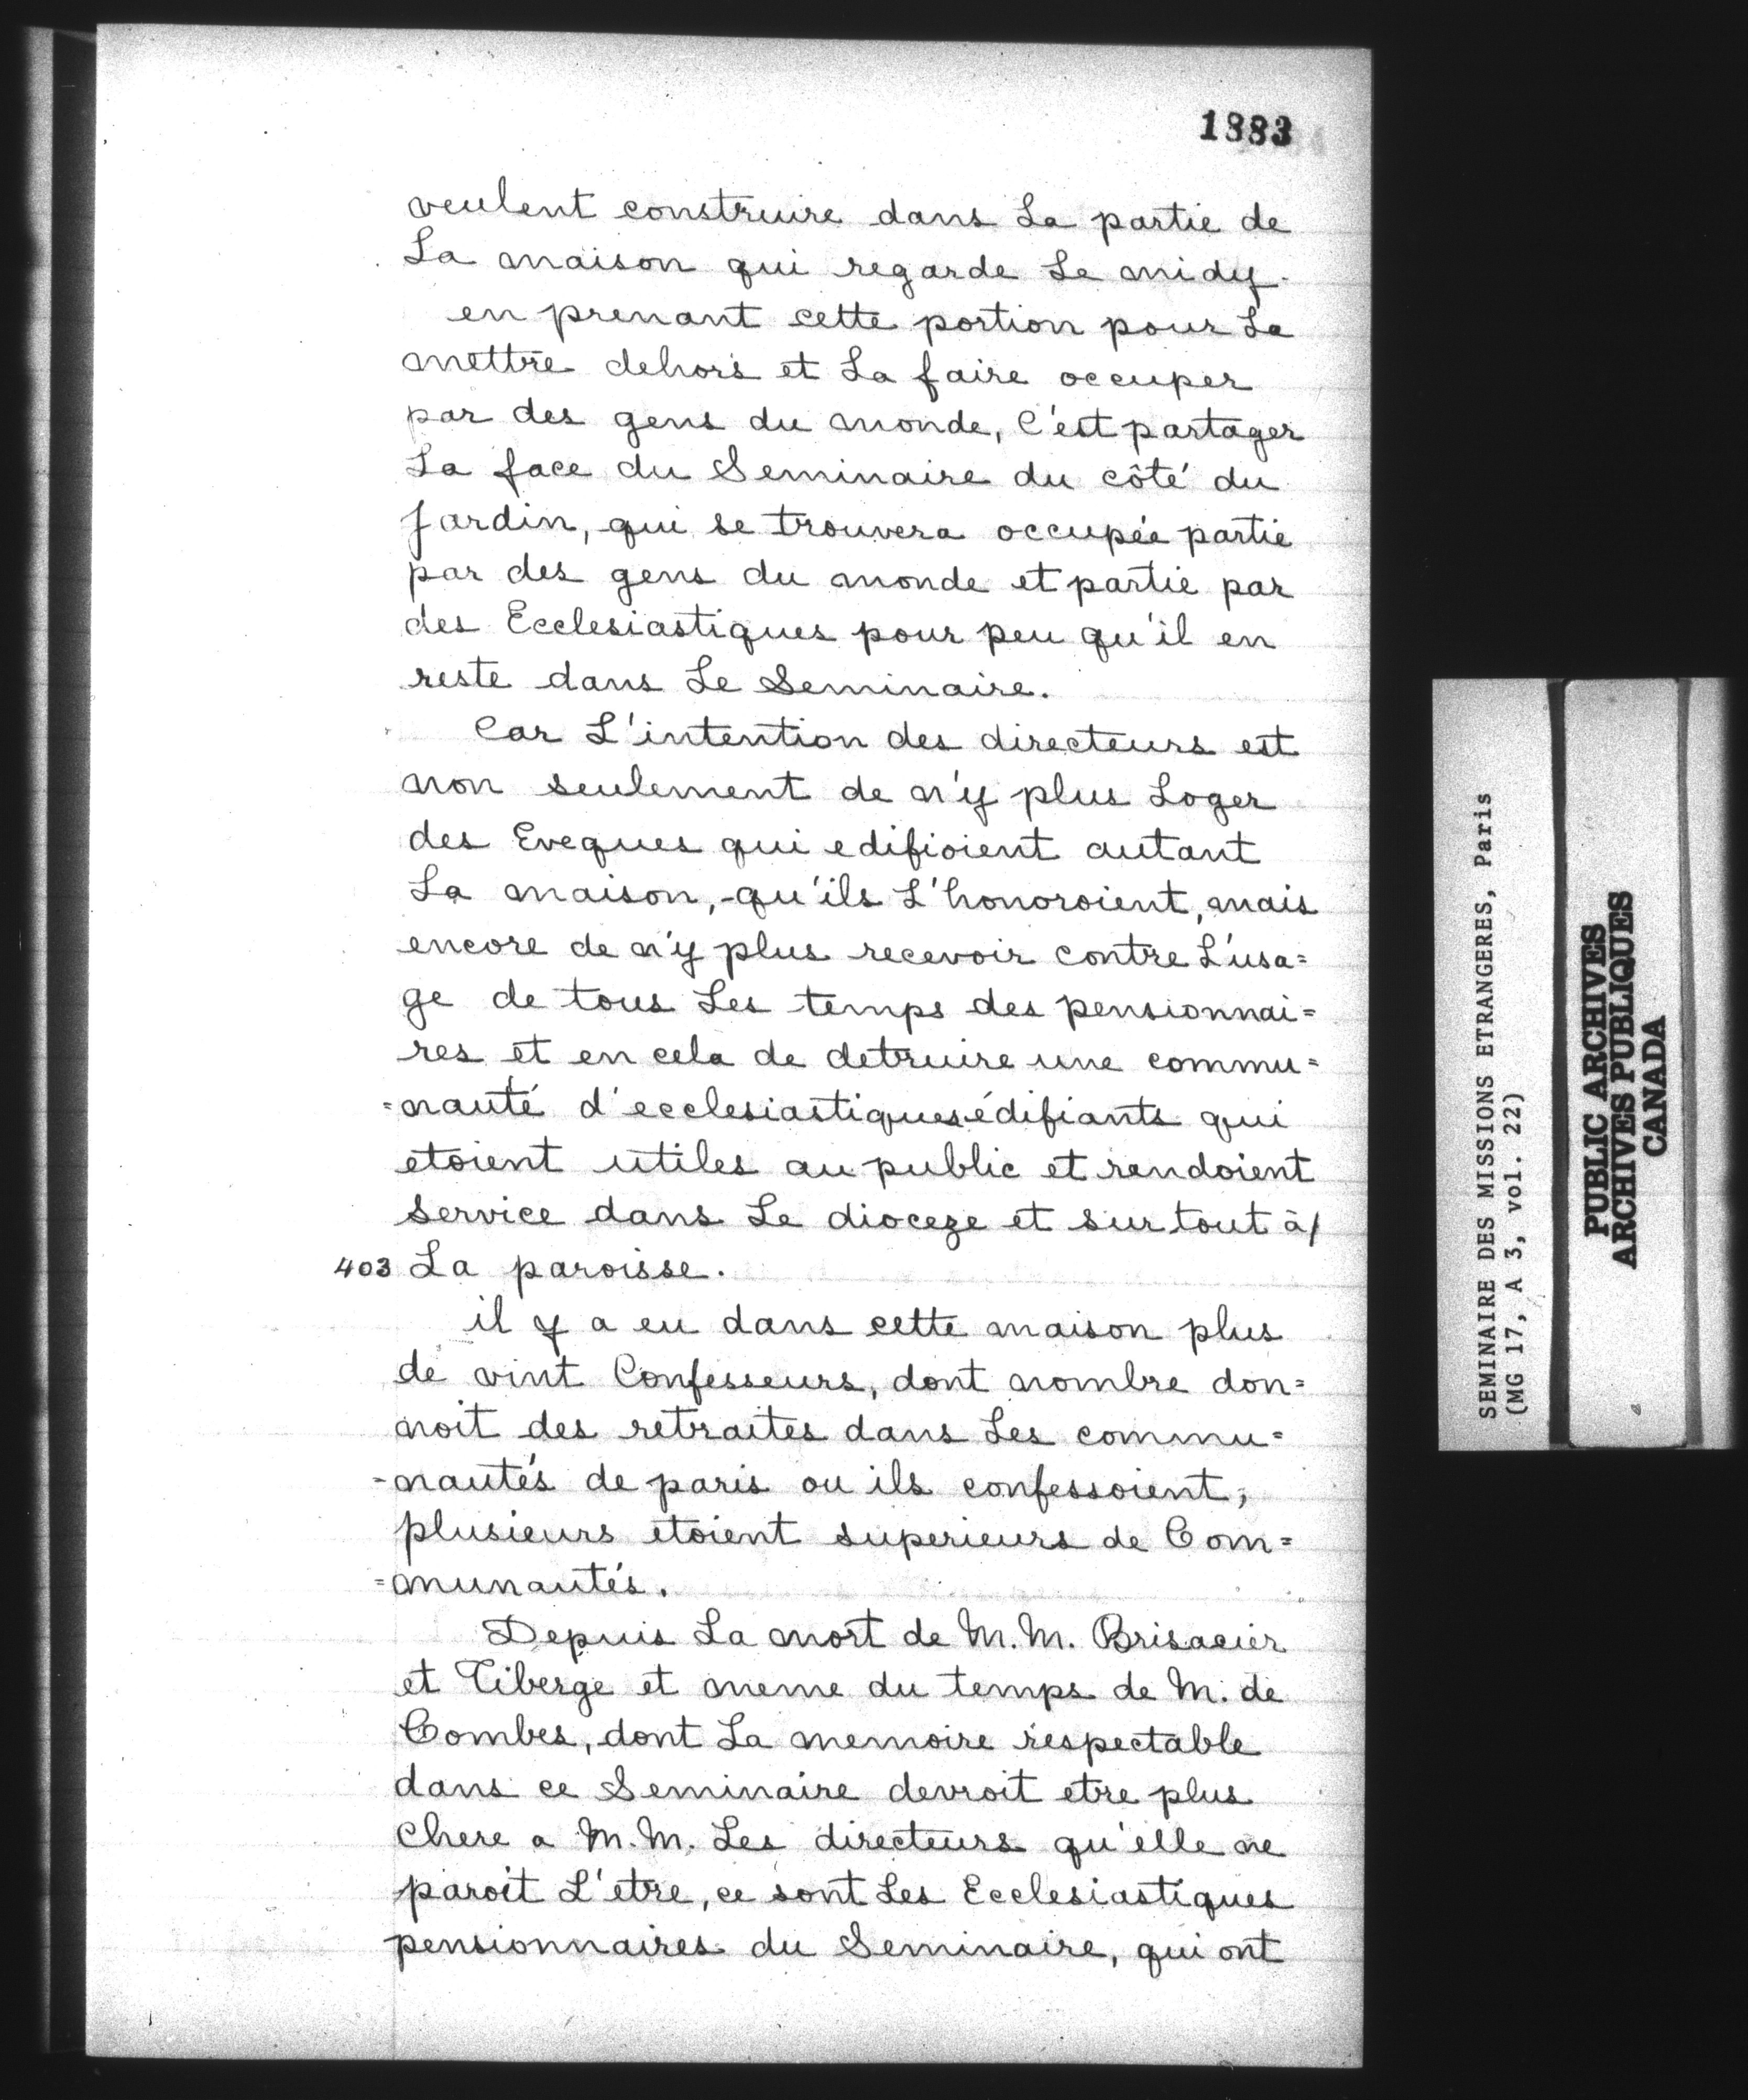 1883
veulent construire dans La partie de
La maison qui regarde Le midy.
en prenant cette portion pour La
mettre dehors et La faire occuper
par des gens du monde, C'est partager
La face du Seminaire du côté du
Jardin, qui se trouvera occupée partie
par des gens du monde et partie par
des Ecclesiastiques pour peu qu'il en
reste dans Le Seminaire.
Car L'intention des directeurs est
non seulement de n'y plus Loger
des Eveques qui edifioient autant
La maison, qu'ils L'honoroient, mais
encore de n'y plus recevoir contre L'usa=
ge de tous Les temps des pensionnai=
res et en cela de detruire une commu=
=nauté d'ecclesiastiques édifiants qui
etoient utiles au public et rendoient
service dans Le dioceze et sur tout à/
403 La paroisse.
il y a eu dans cette maison plus
de vint Confesseurs, dont nombre don=
noit des retraites dans Les commu=
=nautés de paris ou ils confessoient,
plusieurs etoient superieurs de Com=
=munautés.
Depuis La mort de M.M. Brisacier
et Tiberge et meme du temps de M. de
Combes, dont La memoire respectable
dans ce Seminaire devroit etre plus
Chere a M.M. Les directeurs qu'elle ne
paroit L'etre, ce sont Les Ecclesiastiques
pensionnaires du Seminaire, qui ont
SEMINAIRE DES MISSIONS ETRANGERES, Paris
(MG 17, A 3, vol. 22)
PUBLIC ARCHIVES
ARCHIVES PUBLIQUES
CANADA